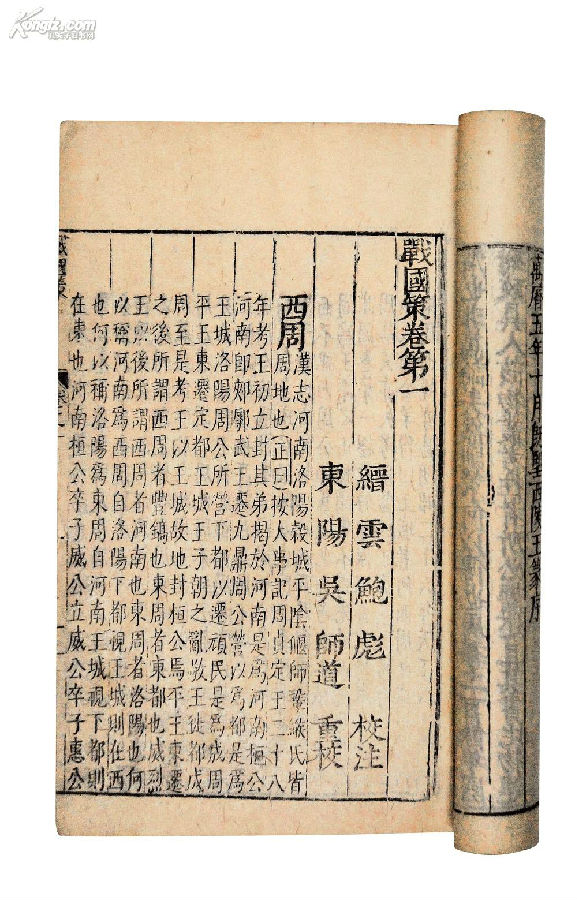 Kongfz.com
萬曆五年十月既望西陵王篆序
戰國策卷第一
縉雲鮑彪校注
東陽吳師道重校
西周
漢志河南洛陽穀城平陰偃師鞏緱氏皆
周地也正曰按大事記周貞定王二十八
年考王初立封其弟揭於河南是爲河南桓公
河南即郟鄏武王遷九鼎周公營以爲都是爲
王城洛陽周公所營下都以遷頑民是爲成周
平王東遷定都王城王子朝之亂敬王徙都成
周至是考王以王城故地封桓公焉平王東遷
之後所謂西周者豐鎬也東周者東都也威烈
王以後所謂西周者河南也東周者洛陽也何
以稱河南爲西周自洛陽下都視王城則在西
也何以稱洛陽爲東周自河南王城視下都則
在東也河南桓公卒子威公立威公卒子惠公
戰國策